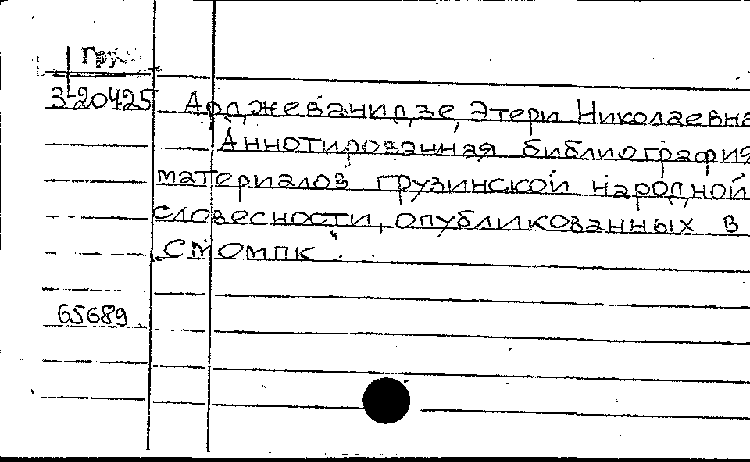 Груз.
3-20425 Арджеванидзе, Этери Николаевна
Аннотированная библиография
материалов грузинской народной
словесности, опубликованных в
„СМОМПК“.
65689